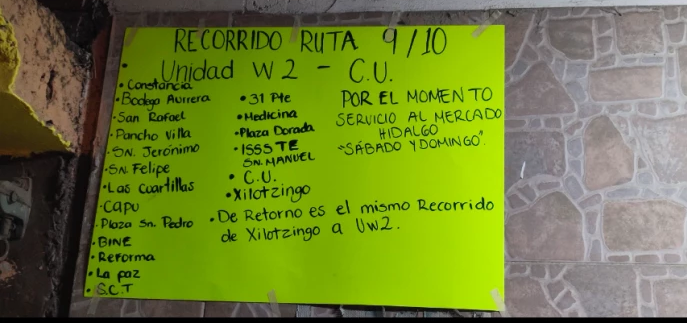 RECORRIDO RUTA 9/10
Unidad W2 - C.U.
• Constancia
• Bodega Aurrera
• San Rafael
• Pancho Villa
• SN. Jerónimo
• SN. Felipe
• Las Cuartillas
• Capu
• Plaza Sn. Pedro
• BINE
• Reforma
• La paz
• S.C.T
• 31 Pte
• Medicina
• Plaza Dorada
• ISSSTE
SN. MANUEL
• C.U.
• Xilotzingo
POR EL MOMENTO
SERVICIO AL MERCADO
HIDALGO
"SÁBADO Y DOMINGO".
• De Retorno es el mismo Recorrido
de Xilotzingo a UW2.